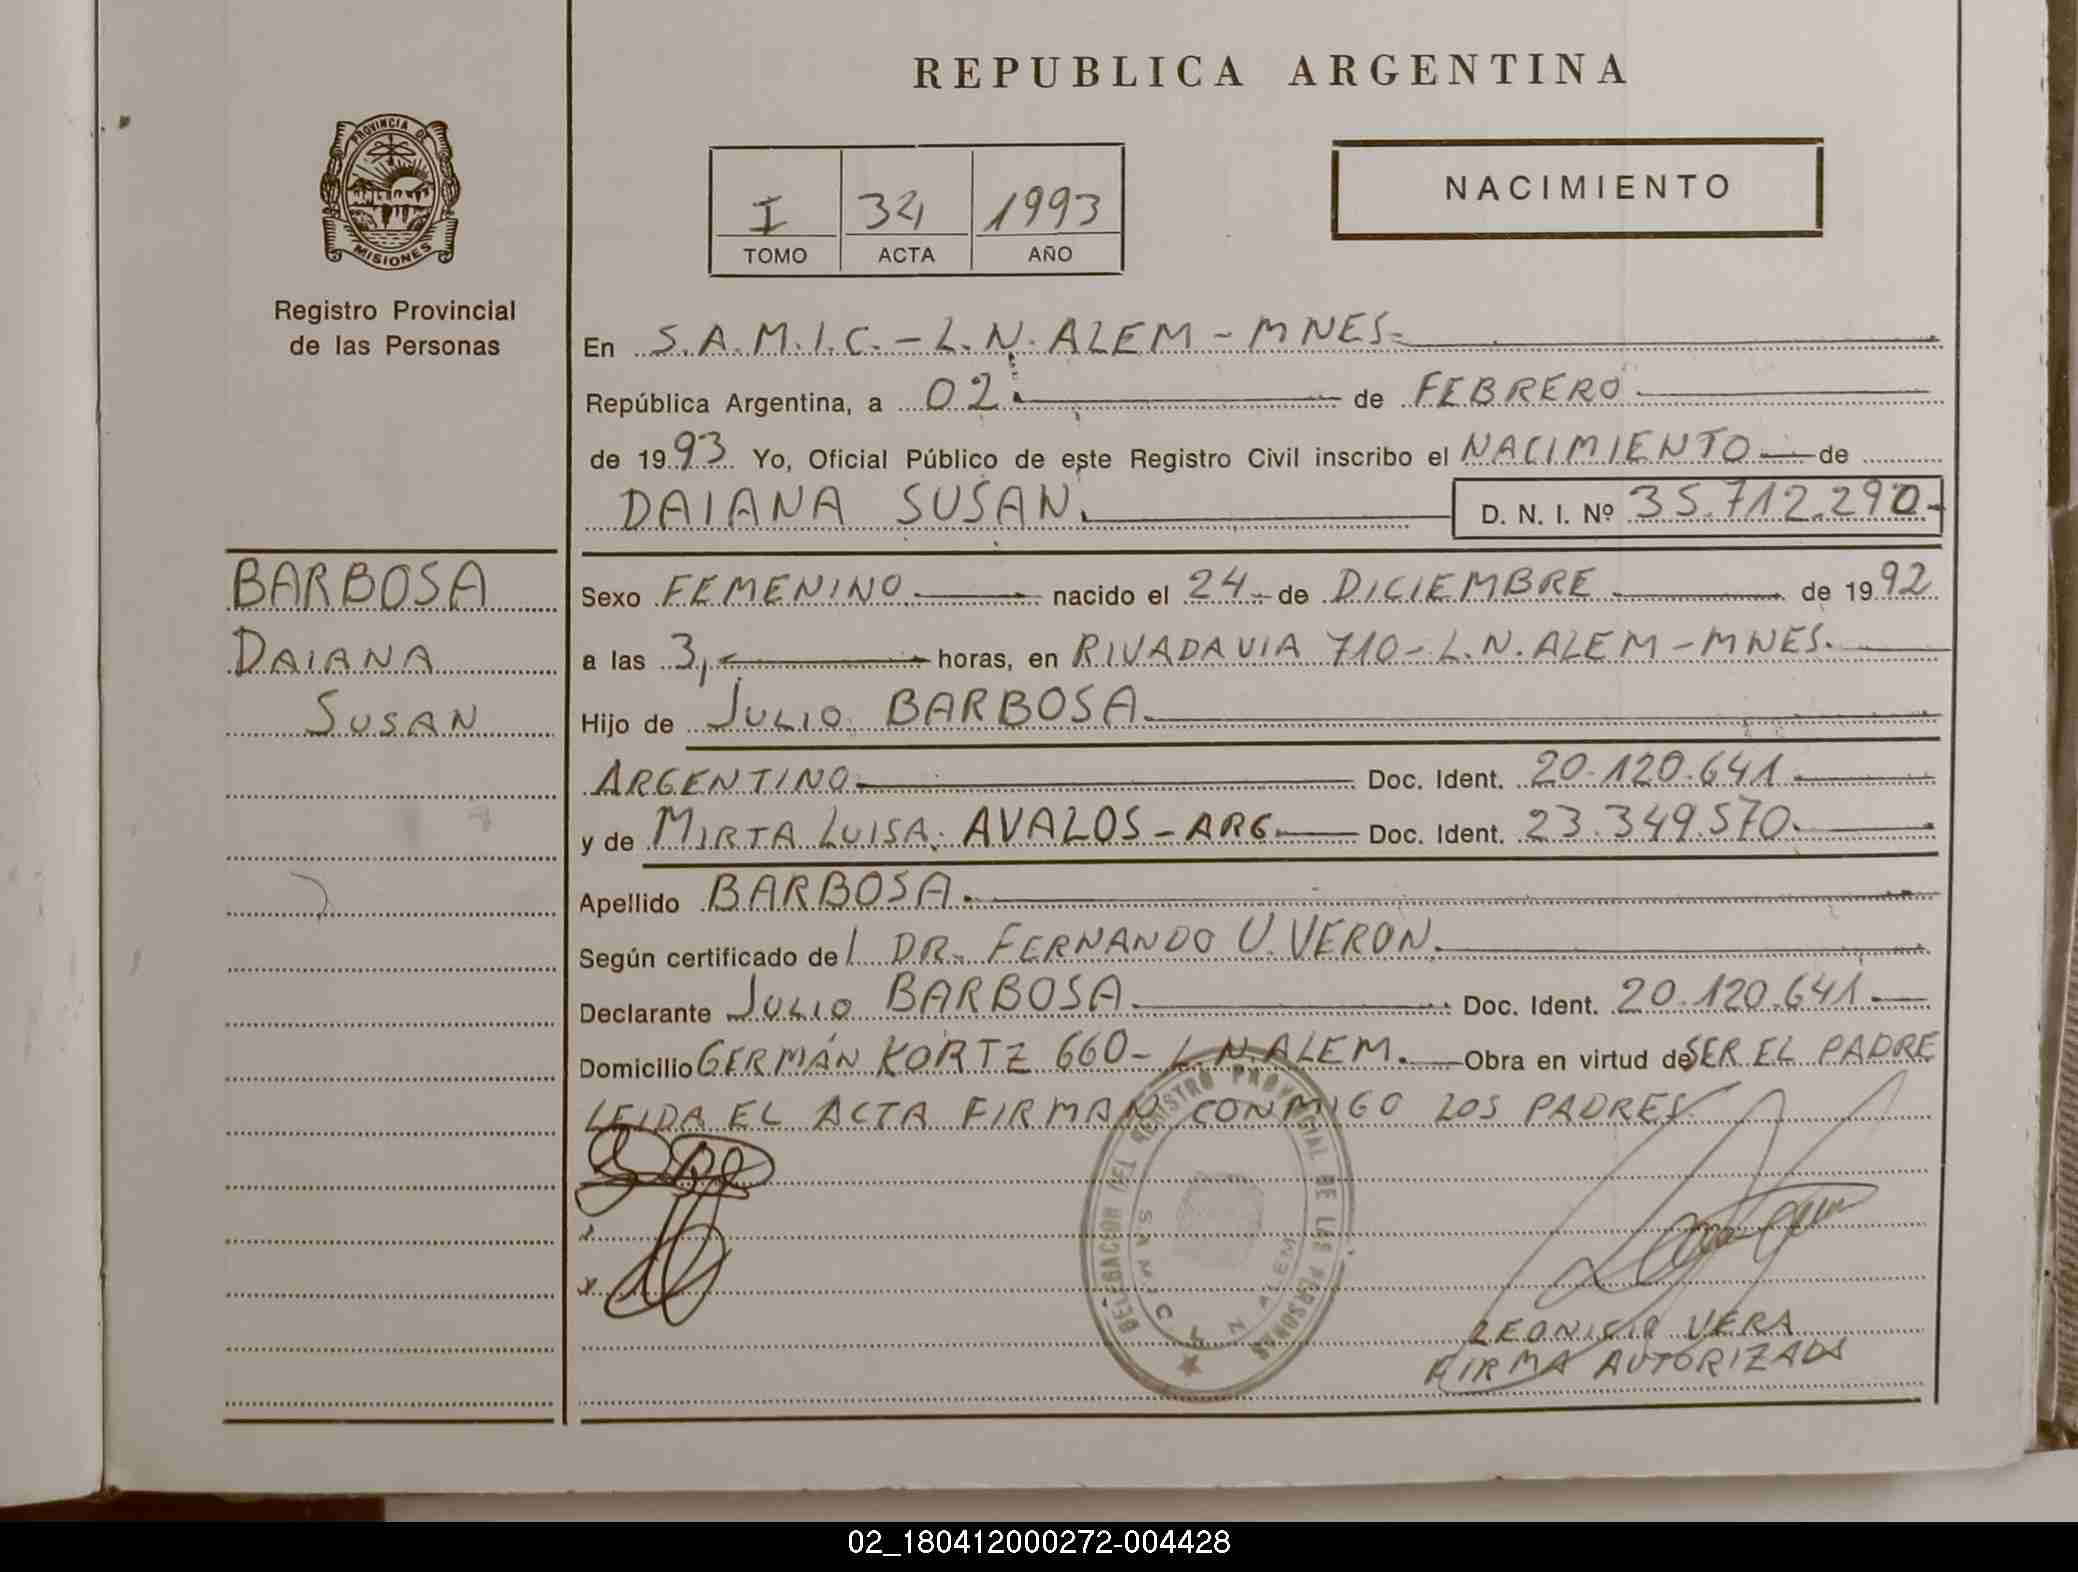 REPUBLICA ARGENTINA
PROVINCIA DE
MISIONES
Registro Provincial
de las Personas
I 34 1993
TOMO ACTA AÑO
NACIMIENTO
En S.A.M.I.C. - L.N. ALEM - MNES-
República Argentina, a 02 de FEBRERO
de 1993 Yo, Oficial Público de este Registro Civil inscribo el NACIMIENTO de
DAIANA SUSAN. D. N. I. Nº 35.712.290-
BARBOSA
DAIANA
SUSAN
Sexo FEMENINO nacido el 24 de DICIEMBRE de 1992
a las 3, horas, en RIVADAVIA 710 - L.N. ALEM - MNES.
Hijo de JULIO BARBOSA
ARGENTINO Doc. Ident. 20.120.641
y de MIRTA LUISA AVALOS - ARG. Doc. Ident. 23.349.570
Apellido BARBOSA.
Según certificado de l DR. FERNANDO U. VERON.
Declarante JULIO BARBOSA Doc. Ident. 20.120.641
Domicilio GERMÁN KORTZ 660 - L.N. ALEM. Obra en virtud de SER EL PADRE
LEIDA EL ACTA FIRMAN CONMIGO LOS PADRES
DELEGACION DEL REGISTRO PROVINCIAL DE LAS PERSONAS
S A M I C L N ALEM
LEONICIO VERA
FIRMA AUTORIZADA
02_180412000272-004428